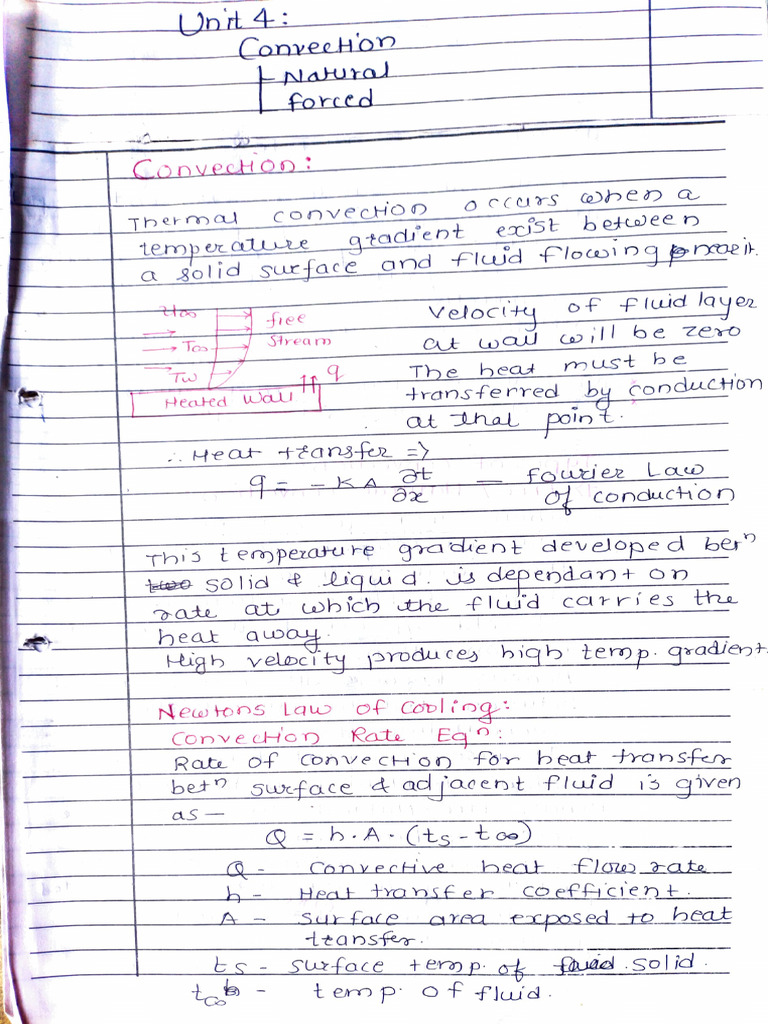 Unit 4:
Convection
Natural
forced
Convection:
Thermal convection occurs when a
temperature gradient exist between
a solid surface and fluid flowing near it.
U∞ free
T∞ stream
Tw q
Heated Wall
Velocity of fluid layer
at wall will be zero
The heat must be
transferred by conduction
at that point.
∴ Heat transfer =>
q = -KA ∂t/∂x — Fourier Law
of conduction
This temperature gradient developed betn
solid & liquid. is dependant on
rate at which the fluid carries the
heat away.
High velocity produces high temp. gradient.
Newtons Law of Cooling:
Convection Rate Eqn:
Rate of convection for heat transfer
betn surface & adjacent fluid is given
as —
Q = h.A.(ts - t∞)
Q - Convective heat flow rate
h - Heat transfer coefficient.
A - Surface area exposed to heat
transfer.
ts - surface temp. of solid.
t∞ - temp. of fluid.